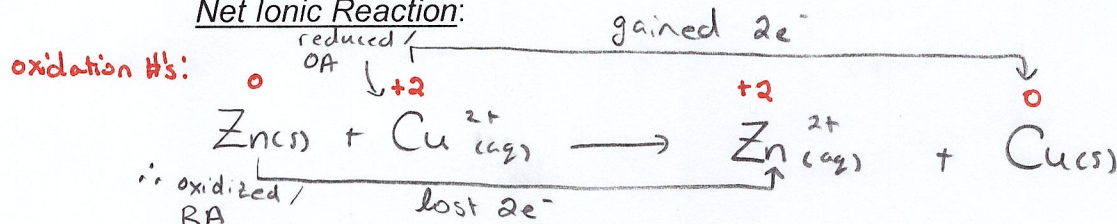 Net Ionic Reaction:
reduced / gained 2e⁻
OA
oxidation #'s: 0 +2 +2 0
Zn(s) + Cu²⁺(aq) → Zn²⁺(aq) + Cu(s)
∴ oxidized / lost 2e⁻
RA